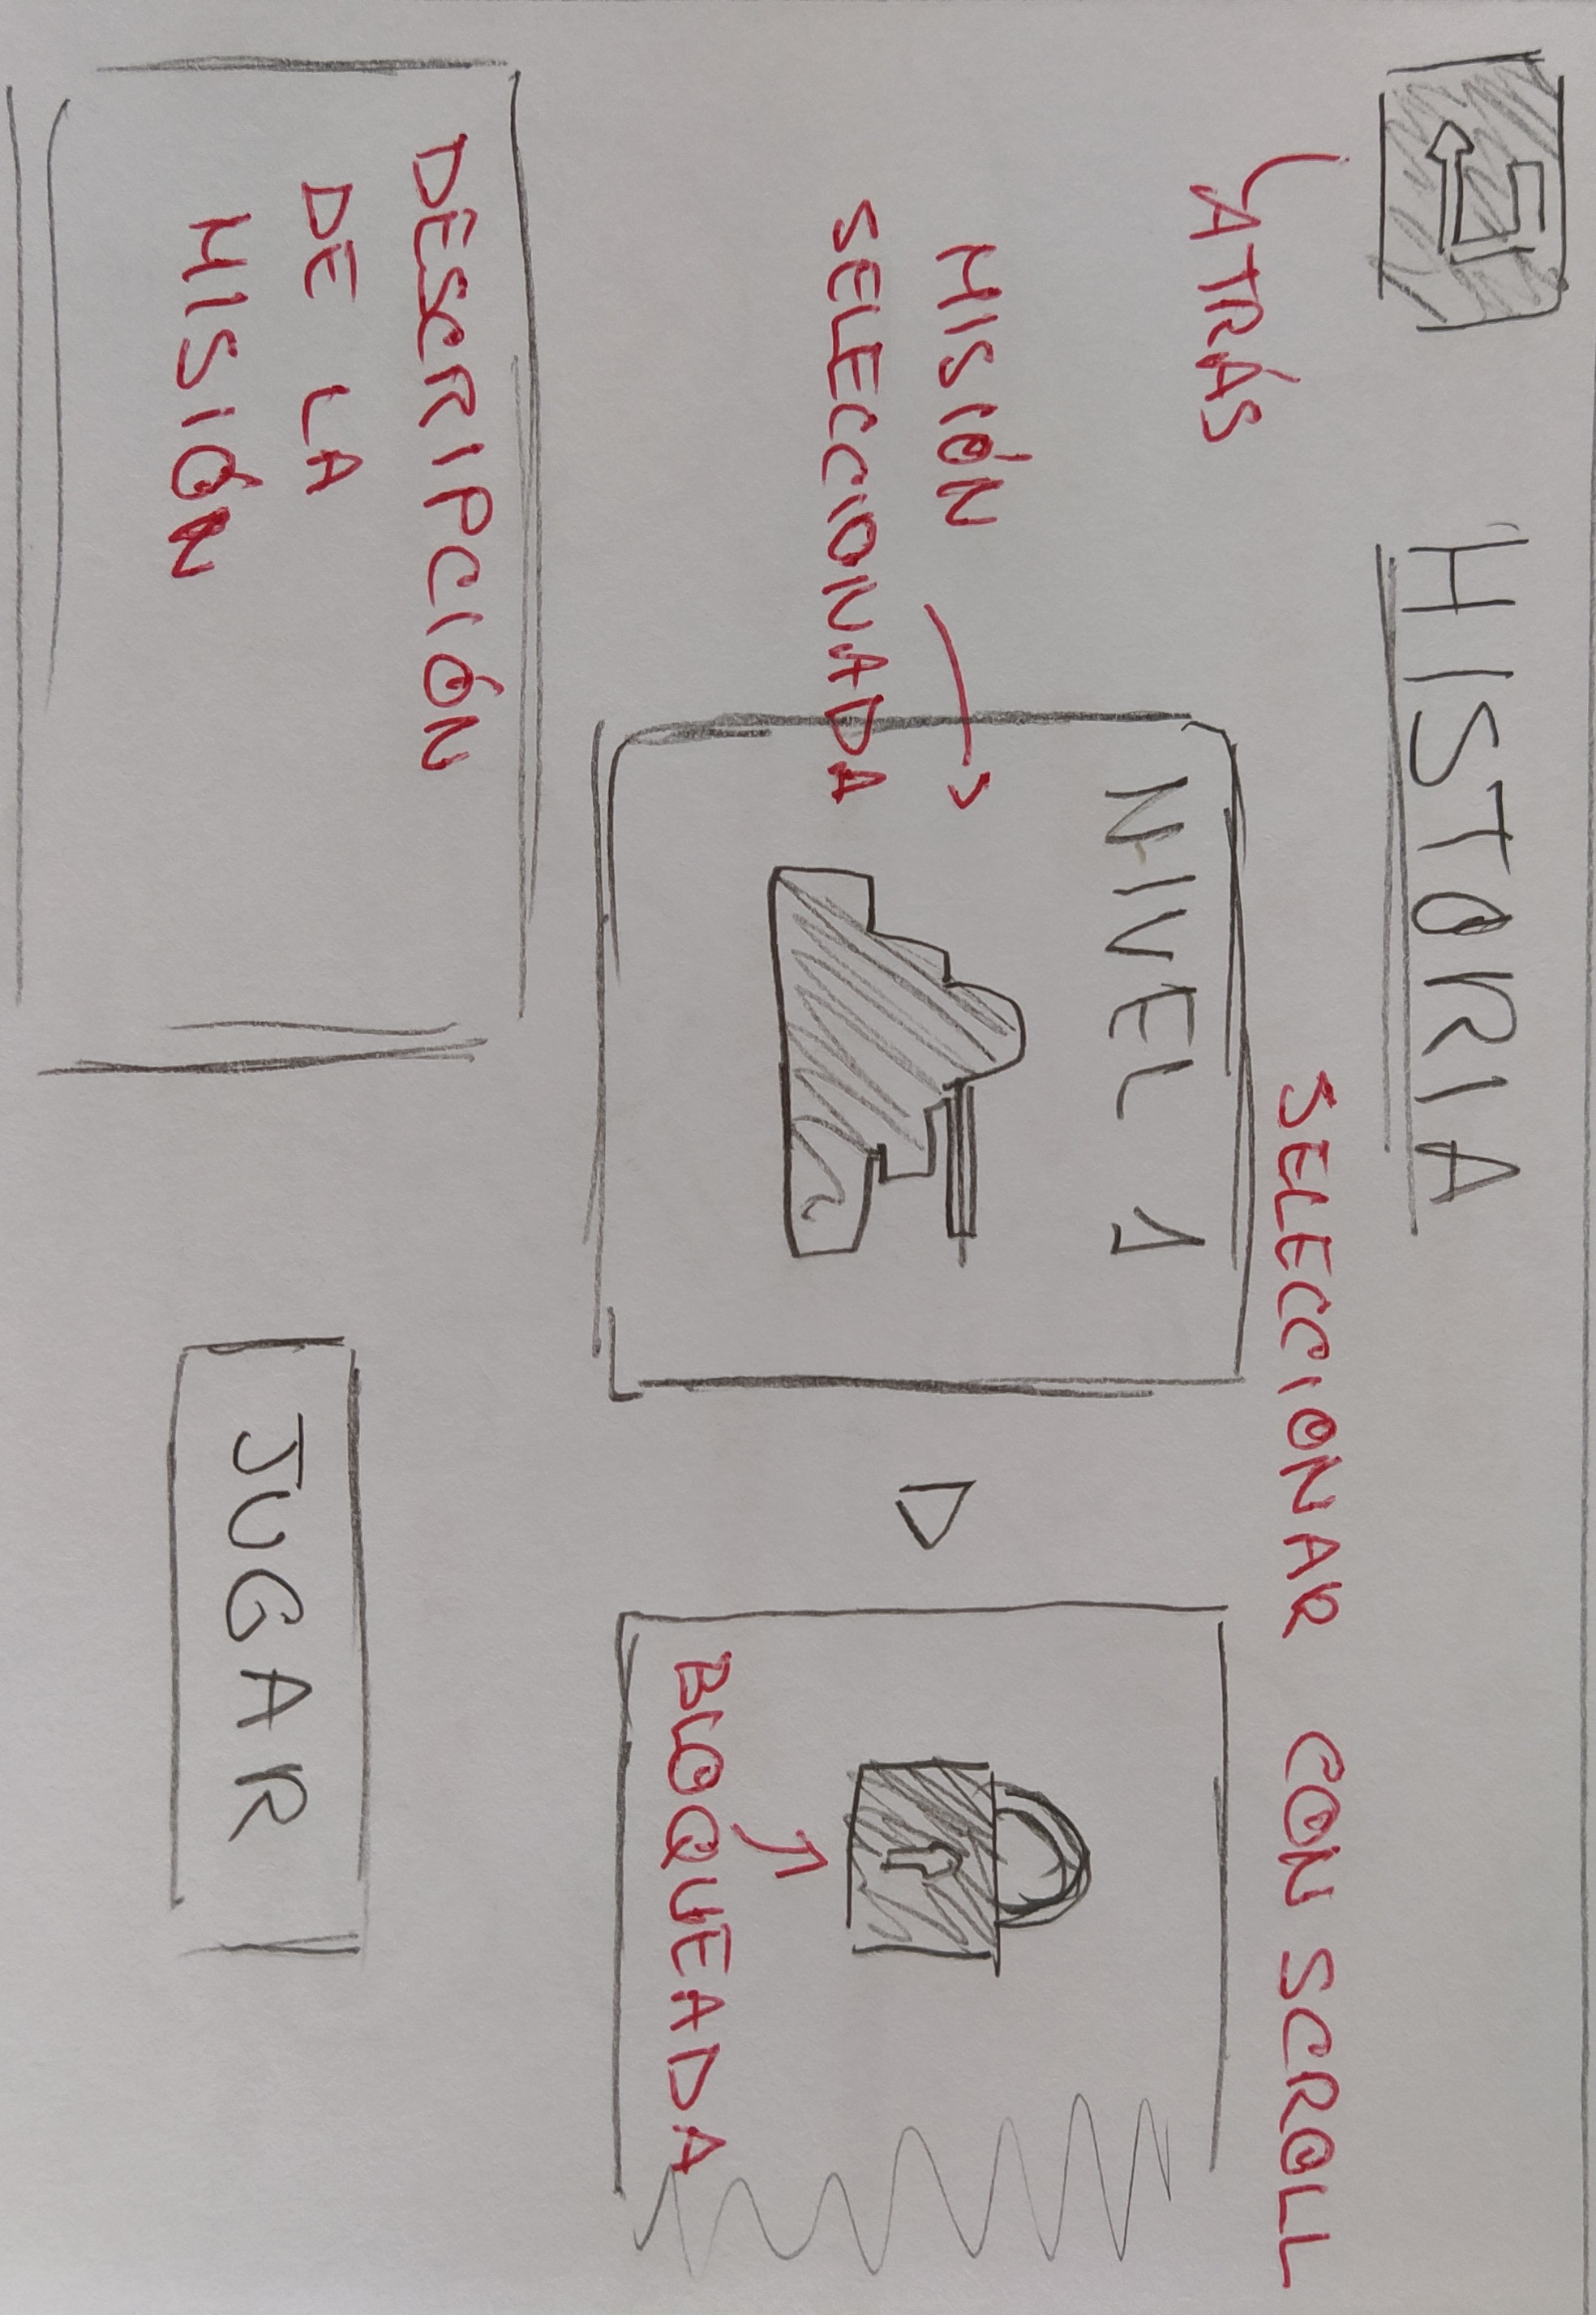 HISTORIA
ATRÁS
SELECCIONAR CON SCROLL
MISIÓN
SELECCIONADA
NIVEL 1
BLOQUEADA
DESCRIPCIÓN
DE LA
MISIÓN
JUGAR